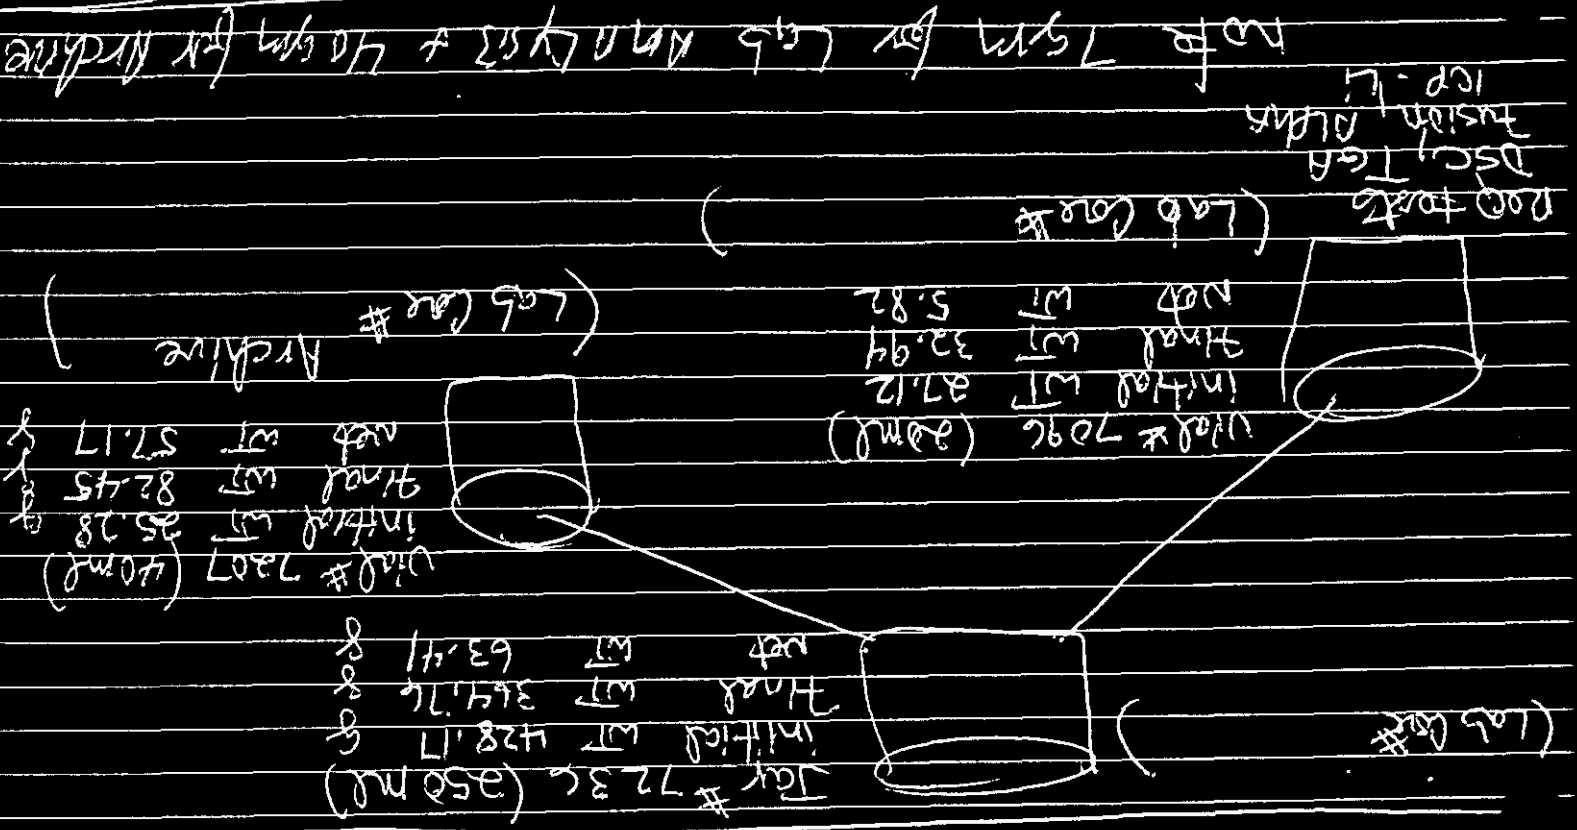 Jar # 7236 (250 ml)
(Lab Core # )
initial WT 428.17 g
Final WT 364.76 g
net WT 63.41 g
Vial # 7207 (40ml)
initial WT 25.28 g
Final WT 82.45 g
net WT 57.17 g
Archive
(Lab Core # )
Vial # 7096 (20ml)
initial WT 27.12
Final WT 32.94
net WT 5.82
(Lab Core # )
Req tests
DSC, TGA
Fusion, Alpha
ICP - Li
Note 7gm for Lab Analysis + 40gm for Archive